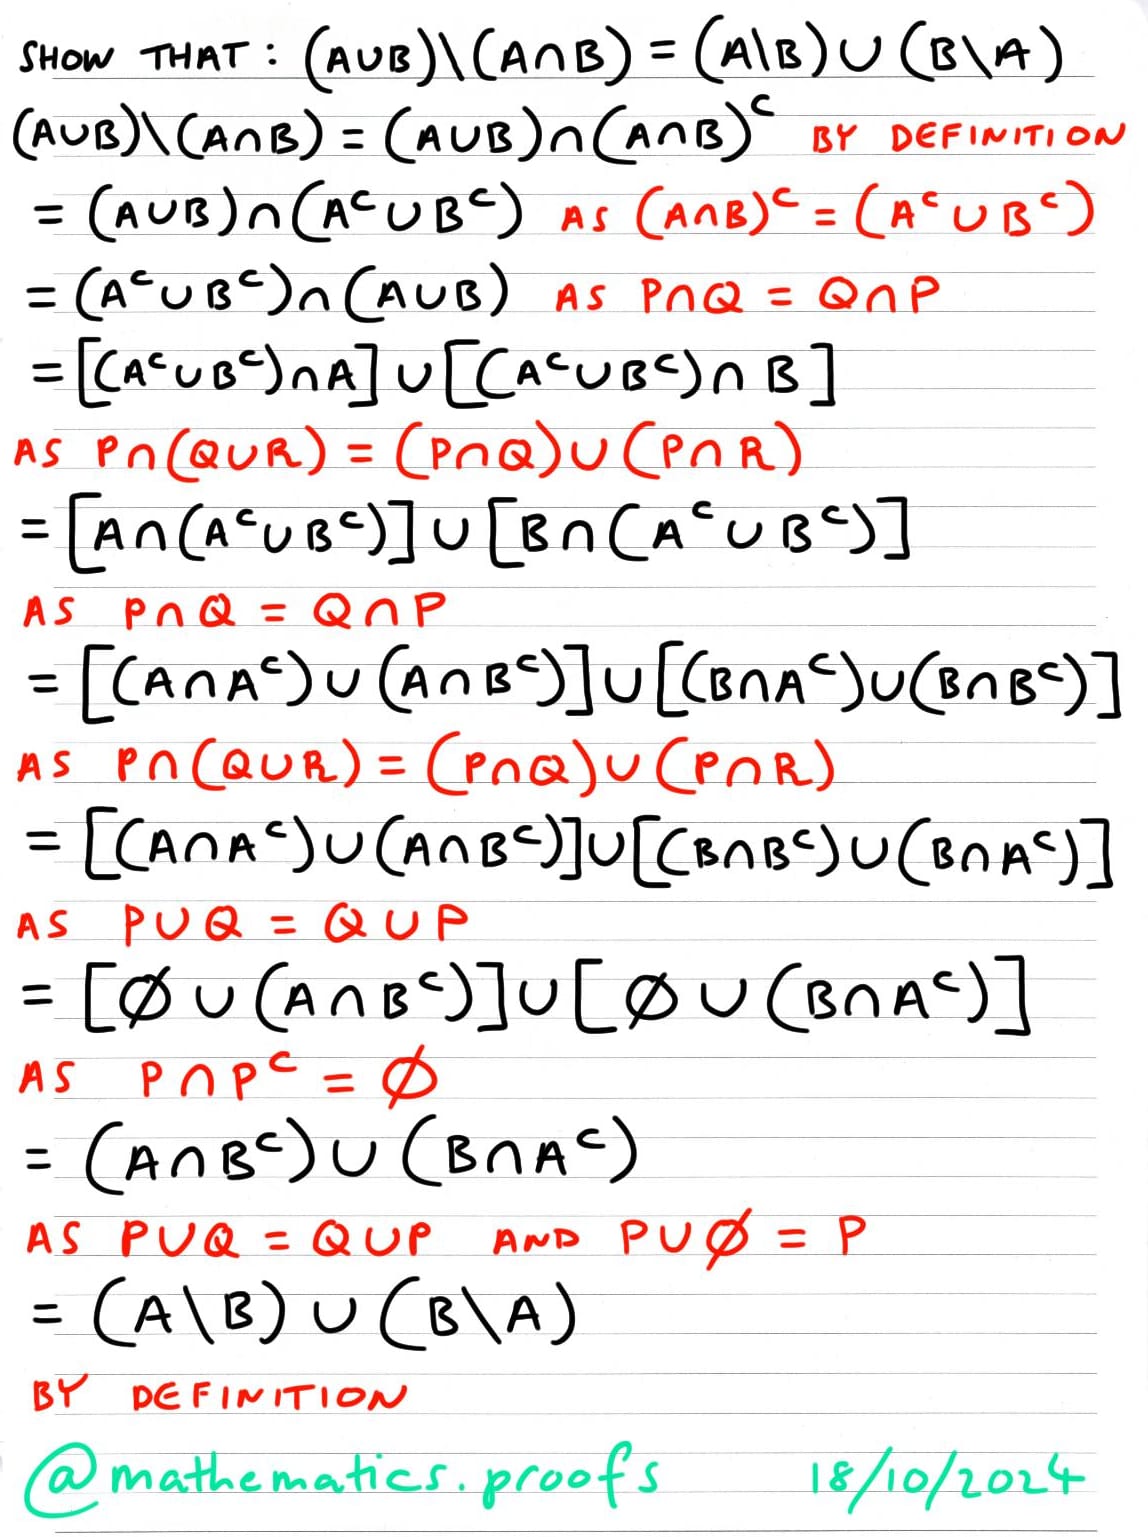 SHOW THAT: (A∪B)\(A∩B) = (A\B)∪(B\A)
(A∪B)\(A∩B) = (A∪B)∩(A∩B)ᶜ BY DEFINITION
= (A∪B)∩(Aᶜ∪Bᶜ) AS (A∩B)ᶜ = (Aᶜ∪Bᶜ)
= (Aᶜ∪Bᶜ)∩(A∪B) AS P∩Q = Q∩P
= [(Aᶜ∪Bᶜ)∩A]∪[(Aᶜ∪Bᶜ)∩B]
AS P∩(Q∪R) = (P∩Q)∪(P∩R)
= [A∩(Aᶜ∪Bᶜ)]∪[B∩(Aᶜ∪Bᶜ)]
AS P∩Q = Q∩P
= [(A∩Aᶜ)∪(A∩Bᶜ)]∪[(B∩Aᶜ)∪(B∩Bᶜ)]
AS P∩(Q∪R) = (P∩Q)∪(P∩R)
= [(A∩Aᶜ)∪(A∩Bᶜ)]∪[(B∩Bᶜ)∪(B∩Aᶜ)]
AS P∪Q = Q∪P
= [∅∪(A∩Bᶜ)]∪[∅∪(B∩Aᶜ)]
AS P∩Pᶜ = ∅
= (A∩Bᶜ)∪(B∩Aᶜ)
AS P∪Q = Q∪P AND P∪∅ = P
= (A\B)∪(B\A)
BY DEFINITION
@mathematics.proofs 18/10/2024